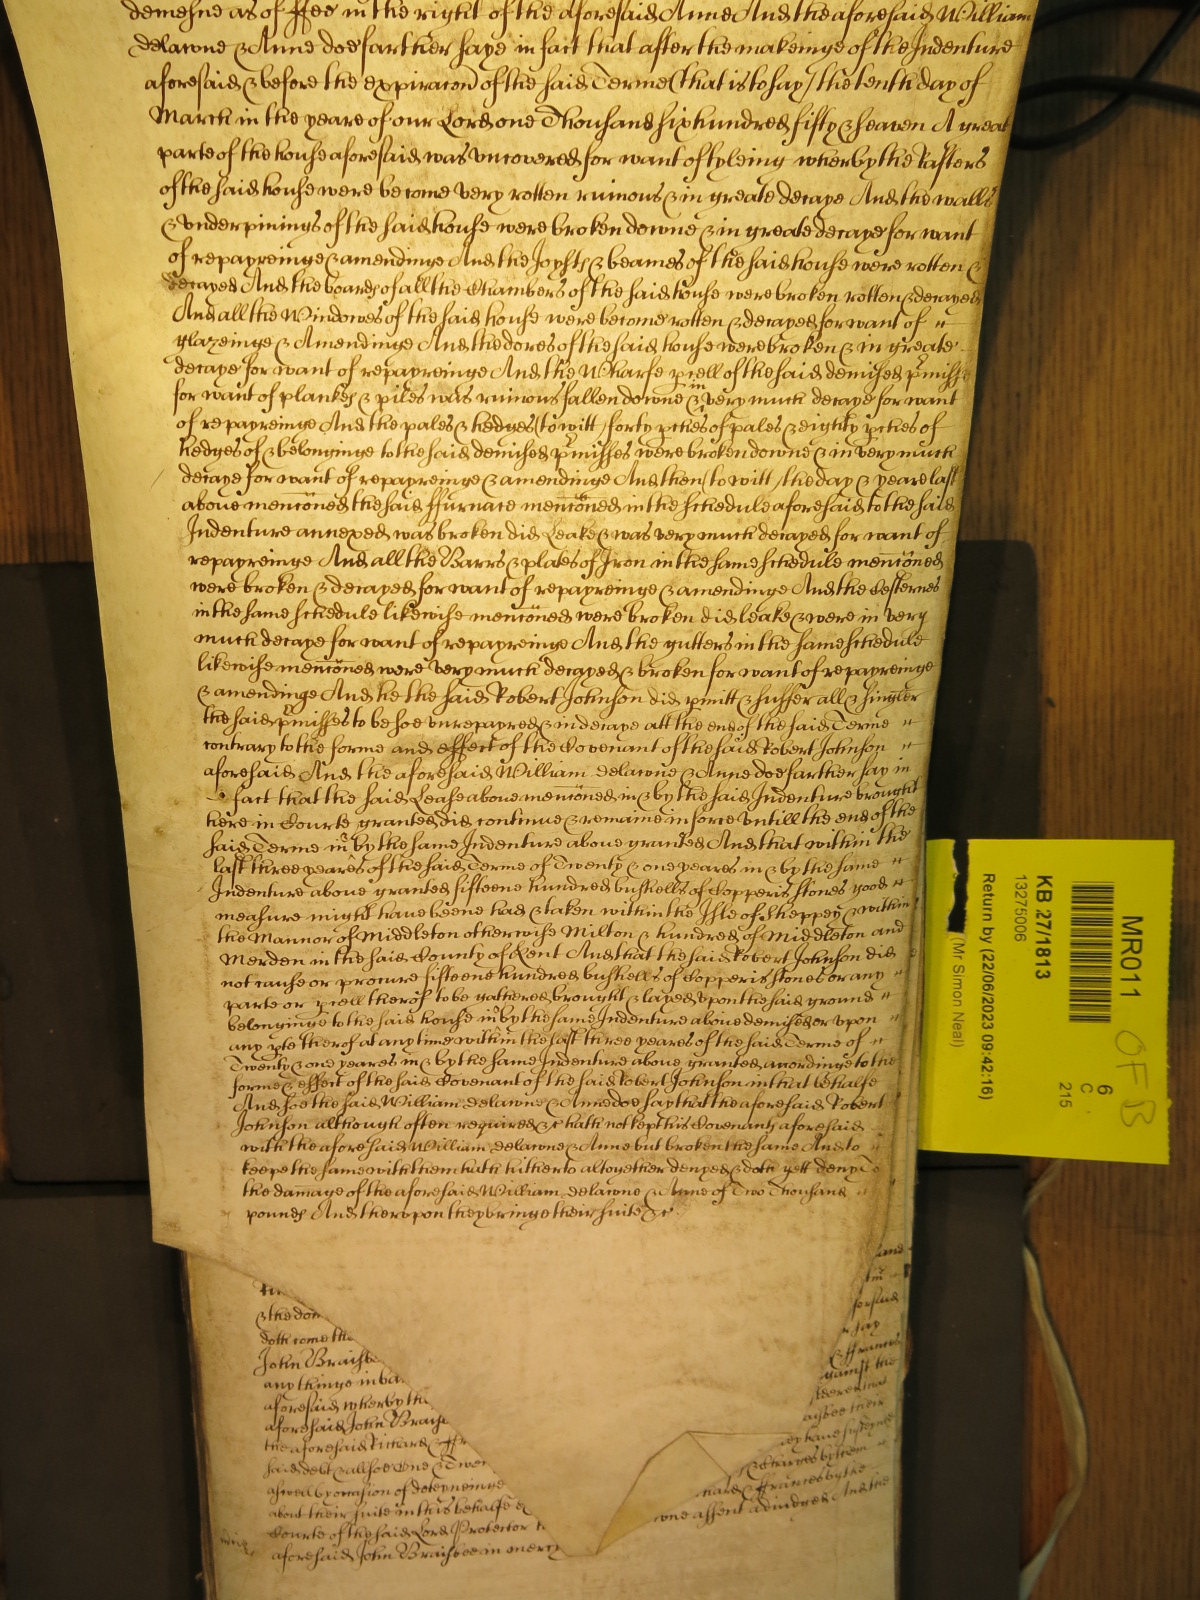 demesne as of ffee in the right of the aforesaid Anne And the aforesaid William
delawne & Anne doe farther saye in fact that after the makeinge of the Indenture
aforesaid & before the expiracon of the said Terme (that is to say) the tenth day of
March in the yeare of our Lord one Thousand six hundred fifty & seaven A great
parte of the house aforesaid was uncovered for want of tyleing wherby the Rafters
of the said house were become very rotten ruinous & in greate decaye And the walls
& underpinings of the said house were broken downe & in greate decaye for want
of repayreinge & amendinge And the Joysts & beames of the said house were rotten &
decayed And the boards of all the Chambers of the said house were broken rotten & decayed
And all the Windowes of the said house were become rotten & decayed for want of "
glazeinge & Amendinge And the dores of the said house were broken & in greate
decaye for want of repayreinge And the Wharfe pcell of the said demised pmisses
for want of plankes & piles was ruinous fallen downe & in very much decaye for want
of repayreinge And the pales & hedges (to witt) forty pches of pales & eighty pches of
hedges of & belonginge to the said demised pmisses were broken downe & in very much
decaye for want of repayreinge & amendinge And then (to witt) the day & yeare last
above menconed the said ffurnace menconed in the schedule aforesaid to the said
Indenture annexed was broken did Leake & was very much decayed for want of
repayreinge And all the Barrs & plates of Iron in the same schedule menconed
were broken & decayed for want of repayreinge & amendinge And the Cesternes
in the same schedule likewise menconed were broken did leake & were in very
much decaye for want of repayreinge And the gutters in the same schedule
likewise menconed were very much decayed & broken for want of repayreinge
& amendinge And he the said Robert Johnson did pmitt & suffer all & singler
the said pmisses to be soe unrepayred & in decaye att the end of the said Terme "
contrary to the forme and effect of the Covenant of the said Robert Johnson "
aforesaid And the aforesaid William delawne & Anne doe farther say in
fact that the said Lease above menconed in & by the said Indenture brought
here in Courte granted did continue & remaine in force untill the end of the
said Terme in & by the same Indenture above granted And that within the
last three yeares of the said Terme of Twenty & one yeares in & by the same "
Indenture above granted fifteene hundred bushells of Copperis stones good "
measure might have beene had & taken within the Isle of Sheppey & within
the Mannor of Middleton otherwise Milton & hundred of Middleton and
Merden in the said County of Kent And that the said Robert Johnson did
not cause or procure fifteene hundred bushells of Copperis stones or any "
parte or pcell therof to be gathered brought & layed upon the said ground "
belonginge to the said house in & by the same Indenture above demised or upon "
any pte therof at any time within the last three yeares of the said Terme of "
Twenty & one yeares in & by the same Indenture above granted accordinge to the
forme & effect of the said Covenant of the said Robert Johnson in that behalfe
And soe the said William delawne & Anne doe say that the aforesaid Robert
Johnson although often required &c hath not kept his Covenants aforesaid
with the aforesaid William delawne & Anne but broken the same And to "
keepe the same with them hath hitherto altogether denyed & doth yett deny To
the damage of the aforesaid William delawne & Anne of Two Thousand "
pounds And therupon they bringe their suite &c
& the
doth come the
John Braisbee
any thinge in ba
aforesaid wherby the
aforesaid John Brais
the aforesaid Richard & ffr
said debt & allsoe One & Twen
aswell by occasion of deteyneinge
about their suite in this behalfe
Courte of the said Lord Protector
aforesaid John Braisbee in mercy
say
& ffrances
gainst the
their
& Charges by them
hard & ffrances by the
owne assent adiudged And the
MR011
KB 27/1813
13275006
Return by (22/06/2023 09:42:16)
(Mr Simon Neal)
6
C
215
OF B